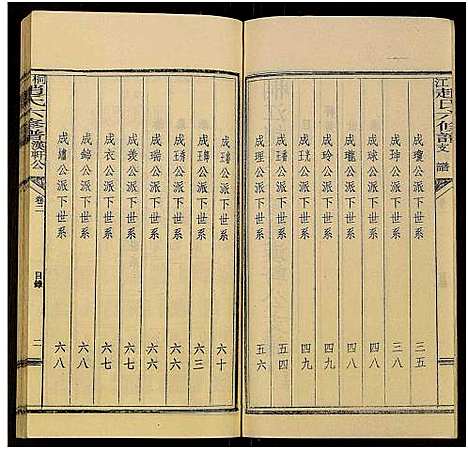 江趙氏六修譜
支譜
成瓊公派下世系 三五
成珅公派下世系 三八
成球公派下世系 四八
成瓏公派下世系 四八
成玲公派下世系 四九
公派下世系 四九
公派下世系 五四
成理公派下世系 五六
公派下世系 六十
公派下世系 六三
公派下世系 六六
成瑞公派下世系 六六
成羨公派下世系 六七
成衣公派下世系 六七
成錦公派下世系 六八
成璠公派下世系 六八
桐趙氏六修譜
漢軒公
卷二
目錄
二